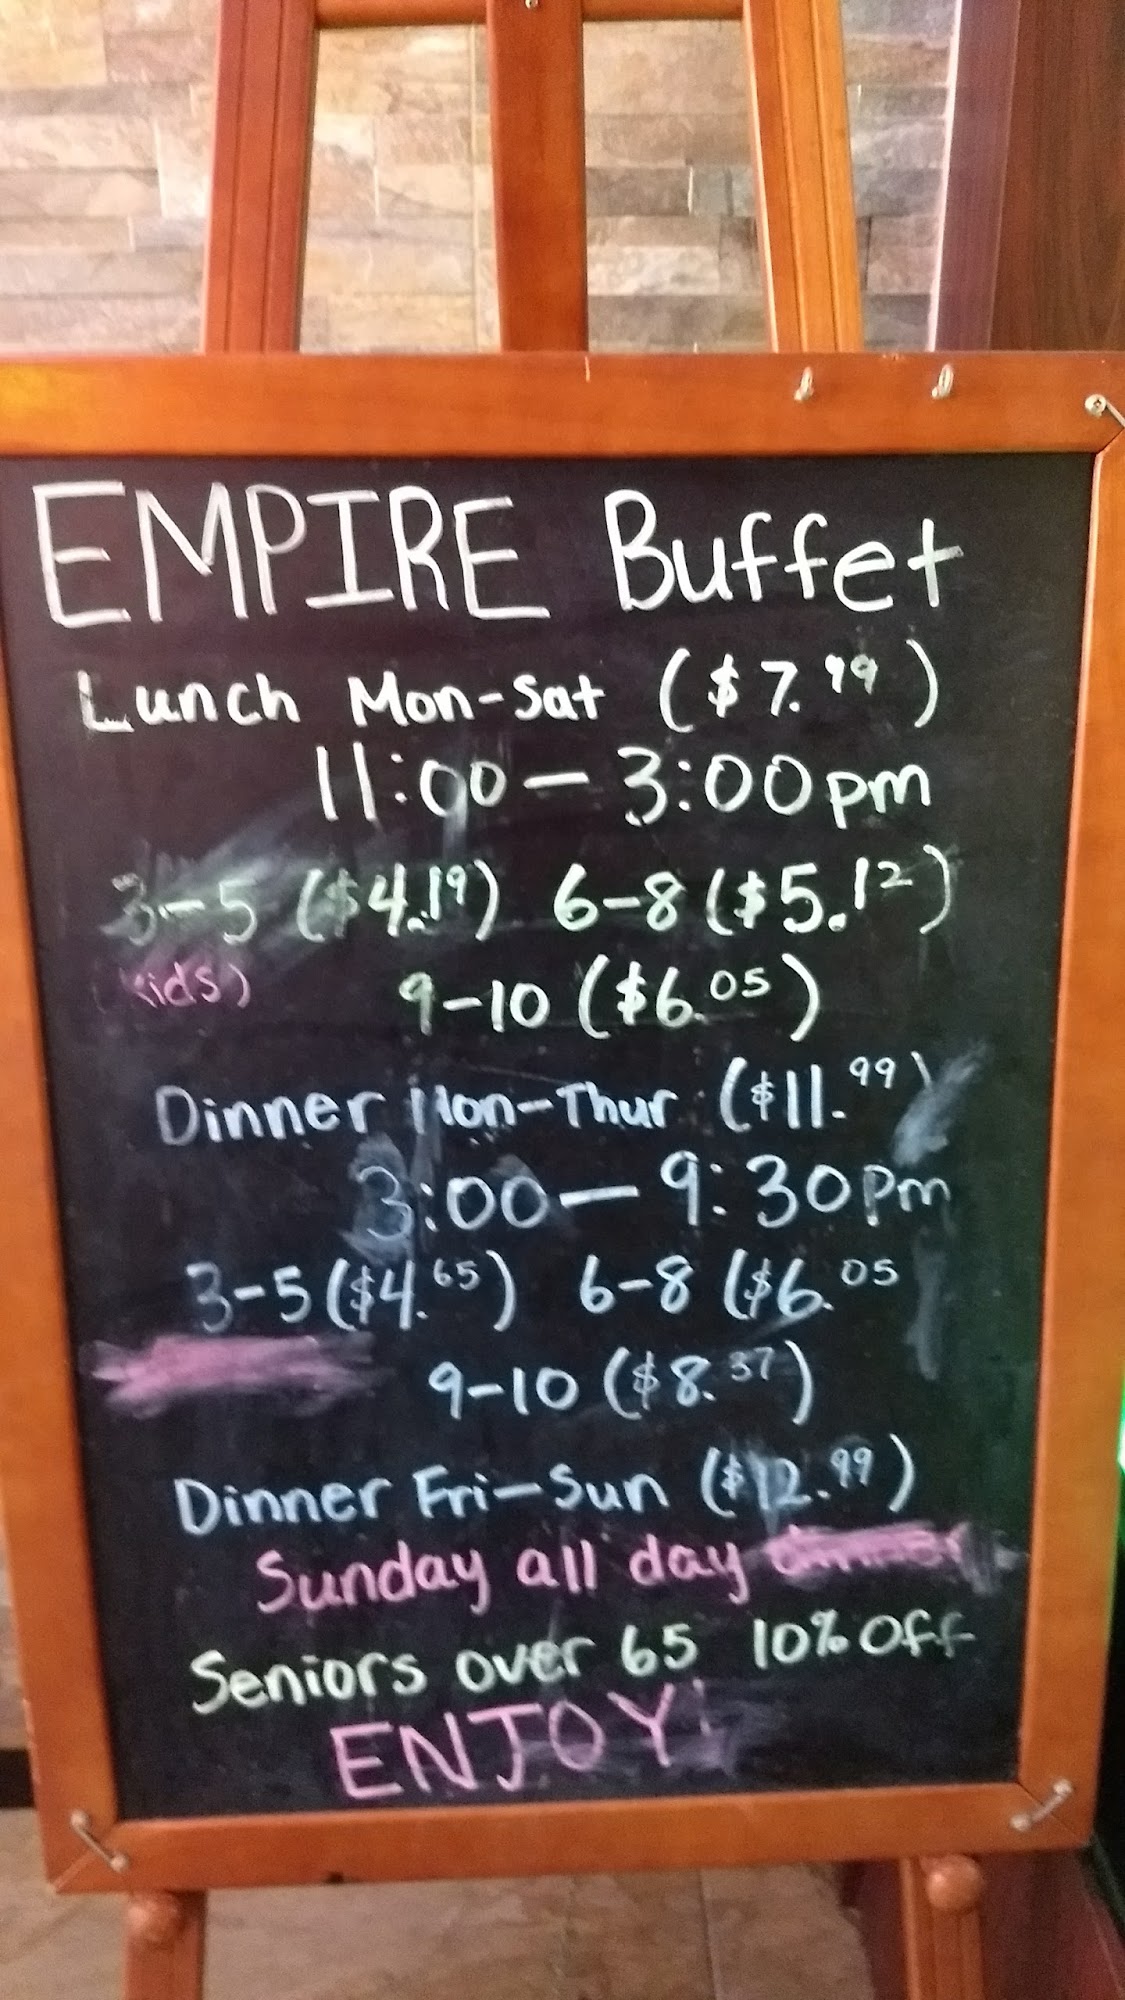 EMPIRE Buffet
Lunch Mon-Sat ($7.99)
11:00 — 3:00pm
3-5 ($4.19) 6-8 ($5.12)
(kids) 9-10 ($6.05)
Dinner Mon-Thur ($11.99)
3:00 — 9:30pm
3-5 ($4.65) 6-8 ($6.05
9-10 ($8.37)
Dinner Fri-Sun ($12.99)
Sunday all day dinner
Seniors over 65 10% off
ENJOY!